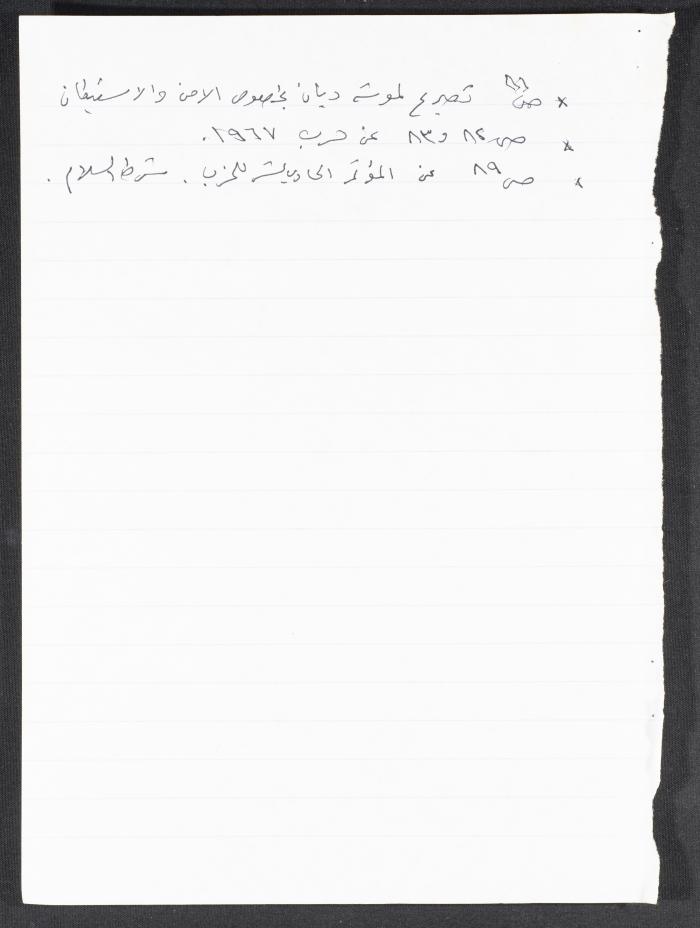 × ص تصريح لموشه ديان بخصوص الامن والاستيطان
× ص ٨٢ و ٨٣ عن حرب ١٩٦٧.
× ص ٨٩ عن المؤتمر الحادي عشر للحزب. شرط السلام.